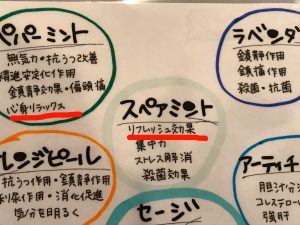 ペパーミント
無気力・抗うつ改善
精神安定化作用
鎮静効果・偏頭痛
心身リラックス
ラベンダ
鎮静作用
鎮痛作用
殺菌・抗菌
スペアミント
リフレッシュ効果
集中力
ストレス解消
殺菌効果
レンジピール
抗うつ作用・鎮静作用
利尿作用・消化促進
気分を明るく
アーティチ
胆汁分
コレステロール
強肝
セージ